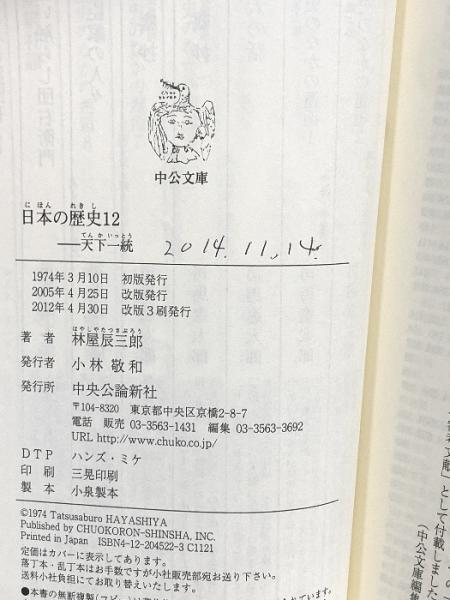 中公文庫
にほん れきし
日本の歴史12
てんかいっとう
——天下一統
2014.11.14.
1974年3月10日 初版発行
2005年4月25日 改版発行
2012年4月30日 改版3刷発行
はやしやたつさぶろう
著者 林屋辰三郎
発行者 小林敬和
発行所 中央公論新社
〒104-8320 東京都中央区京橋2-8-7
電話 販売 03-3563-1431 編集 03-3563-3692
URL http://www.chuko.co.jp/
DTP ハンズ・ミケ
印刷 三晃印刷
製本 小泉製本
©1974 Tatsusaburo HAYASHIYA
Published by CHUOKORON-SHINSHA, INC.
Printed in Japan ISBN4-12-204522-3 C1121
定価はカバーに表示してあります。
落丁本・乱丁本はお手数ですが小社販売部宛お送り下さい。
送料小社負担にてお取り替えいたします。
として付載しました
（中公文庫編集